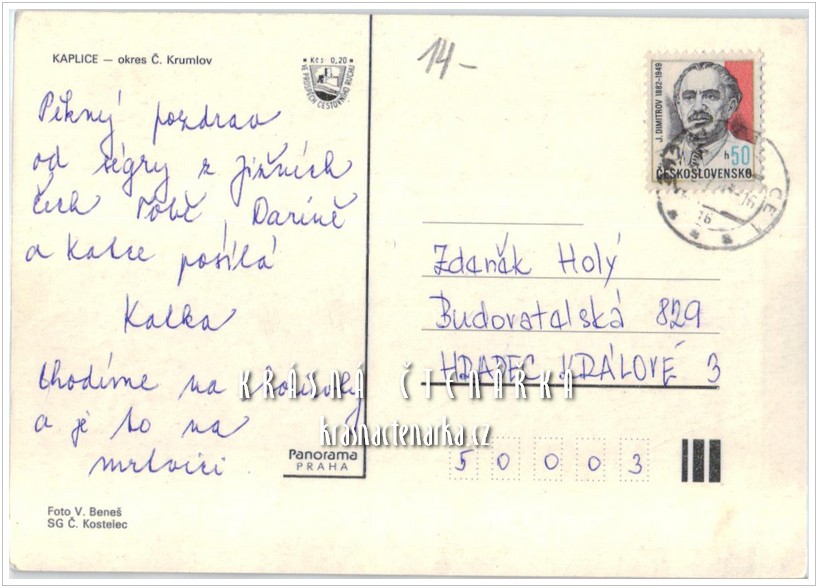 KAPLICE — okres Č. Krumlov
Kčs 0,20
VE PROSPĚCH CESTOVNÍHO RUCHU
14-
J. DIMITROV 1882-1949
h 50
ČESKOSLOVENSKO
Pěkný pozdrav
od ségry z Jižních
Čech Tobě, Darině
a Katce posílá
Katka
Chodíme na
a je to na
Zdeněk Holý
Budovatelská 829
HRADEC KRÁLOVÉ 3
KRÁSNÁ ČTENÁRKA
krasnactenarka.cz
Panorama
PRAHA
5 0 0 0 3
Foto V. Beneš
SG Č. Kostelec